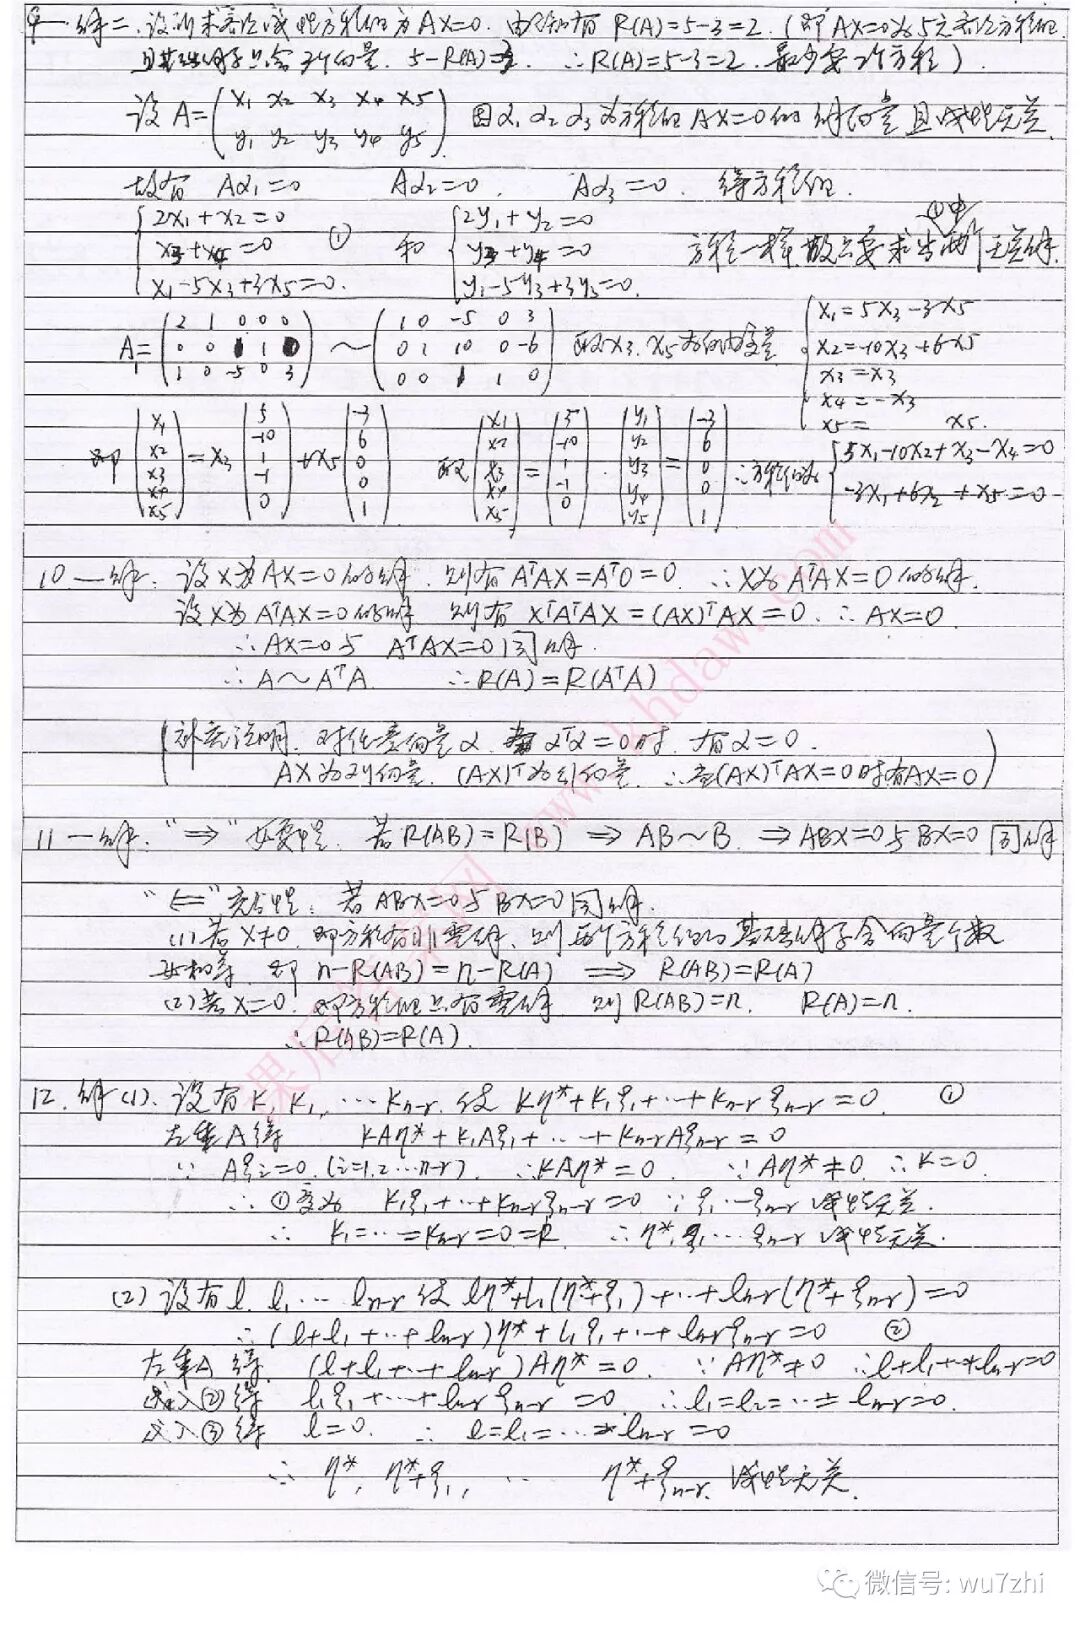 9—解二. 设所求齐次线性方程组为AX=0. 由题知有 R(A)=5-3=2. (即AX=0为5元齐次方程组.
且基础解系只含3个向量. 5-R(A)=3. ∴R(A)=5-3=2. 最少要2个方程).
设A=(x1 x2 x3 x4 x5
y1 y2 y3 y4 y5) 因α1 α2 α3为方程组AX=0的解向量且线性无关.
故有 Aα1=0 Aα2=0. Aα3=0. 得方程组.
{2x1+x2=0
x3+x4=0 ①
x1-5x3+3x5=0.
和 {2y1+y2=0
y3+y4=0
y1-5y3+3y5=0.
方程一样,故只要求出①中两个无关解.
A1=(2 1 0 0 0
0 0 1 1 0
1 0 -5 0 3) ~ (1 0 -5 0 3
0 1 10 0 -6
0 0 1 1 0) 取x3. x5为自由变量
{x1=5x3-3x5
x2=-10x3+6x5
x3=x3
x4=-x3
x5= x5.
即 (x1 x2 x3 x4 x5) = x3 (5 -10 1 -1 0) + x5 (-3 6 0 0 1) 取 (x1 x2 x3 x4 x5) = (5 -10 1 -1 0) . (y1 y2 y3 y4 y5) = (-3 6 0 0 1) ∴方程组为 {5x1-10x2+x3-x4=0
-3x1+6x2+x5=0
10—解. 设X为AX=0的解. 则有AᵀAX=Aᵀ0=0. ∴X为AᵀAX=0的解.
设X为AᵀAX=0的解 则有 XᵀAᵀAX=(AX)ᵀAX=0. ∴AX=0.
∴AX=0与 AᵀAX=0同解.
∴A~AᵀA. ∴R(A)=R(AᵀA)
(补充说明. 对任意向量α. 当αᵀα=0时. 有α=0.
AX为列向量. (AX)ᵀ为行向量. ∴当(AX)ᵀAX=0时有AX=0)
11—解. "⇒" 必要性. 若R(AB)=R(B) ⇒ AB~B. ⇒ABX=0与BX=0同解
"⇐" 充分性. 若ABX=0与BX=0同解.
(1)若X≠0. 即方程有非零解. 则两个方程组的基础解系含向量个数
必相等. 即 n-R(AB)=n-R(A) ⟹ R(AB)=R(A)
(2)若X=0. 即方程组只有零解 则R(AB)=n. R(A)=n.
∴R(AB)=R(A).
12. 解(1). 设有k, k1, …kn-r. 使 kη*+k1ξ1+…+kn-rξn-r=0. ①
左乘A得 kAη*+k1Aξ1+…+kn-rAξn-r=0
∵ Aξi=0. (i=1.2…n-r). ∴kAη*=0. ∵Aη*≠0. ∴k=0.
∴①变为 k1ξ1+…+kn-rξn-r=0 ∵ξ1…ξn-r线性无关.
∴ k1=…=kn-r=0=k. ∴η*,ξ1…ξn-r线性无关.
(2)设有l. l1… ln-r使 lη*+l1(η*+ξ1)+…+ln-r(η*+ξn-r)=0
∴(l+l1+…+ln-r)η*+l1ξ1+…+ln-rξn-r=0 ②
左乘A得. (l+l1+…+ln-r)Aη*=0. ∵Aη*≠0 ∴l+l1+…+ln-r=0
代入②得 l1ξ1+…+ln-rξn-r=0. ∴l1=l2=…=ln-r=0.
代入③得 l=0. ∴ l=l1=…=ln-r=0
∴ η*, η*+ξ1, … η*+ξn-r. 线性无关.
课后答案网 www.khdaw.com
微信号: wu7zhi